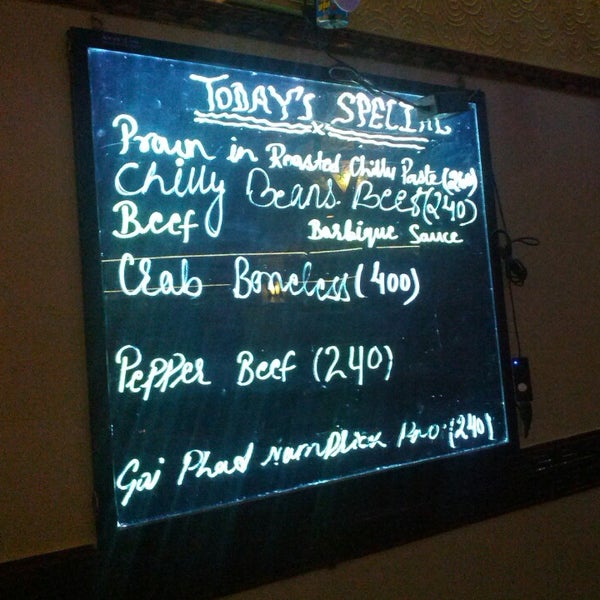 TODAY'S SPECIAL
Prawn in Roasted Chilly Paste (260)
Chilly Beans Beef (240)
Beef Barbique Sauce
Crab Boneless (400)
Pepper Beef (240)
Gai Phad Namprick Pao (240)